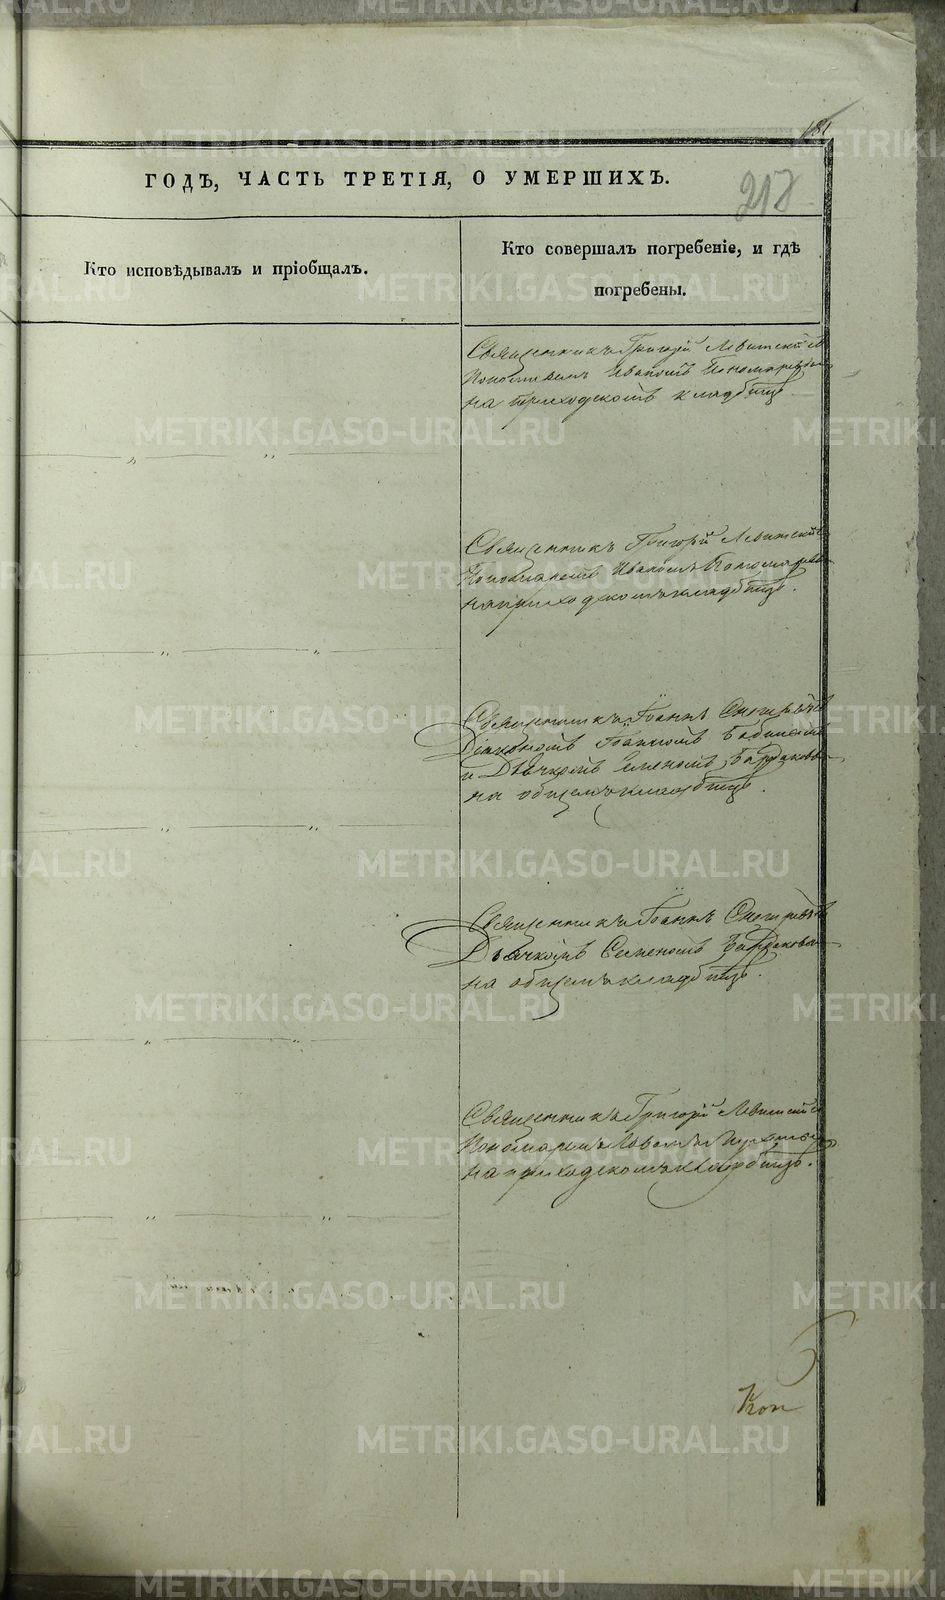 181
ГОДЪ, ЧАСТЬ ТРЕТІЯ, О УМЕРШИХЪ.
218
Кто исповѣдывалъ и пріобщалъ.
Кто совершалъ погребеніе, и гдѣ
погребены.
Священникъ Григорій Левитскій
Иваномъ Пономаревы
на приходскомъ кладбищѣ
Священникъ Григорій Левитскій
Пономаремъ Иваномъ Пономаревы
на приходскомъ кладбищѣ.
Священникъ Іоаннъ
Діакономъ Іоанномъ Бабинымъ
и Дьячкомъ Семеномъ
на общемъ кладбищѣ.
Священникъ Іоаннъ
Дьячкомъ Семеномъ
на общемъ кладбищѣ.
Священникъ Григорій Левитскій
Пономаремъ
на приходскомъ кладбищѣ.
METRIKI.GASO-URAL.RU